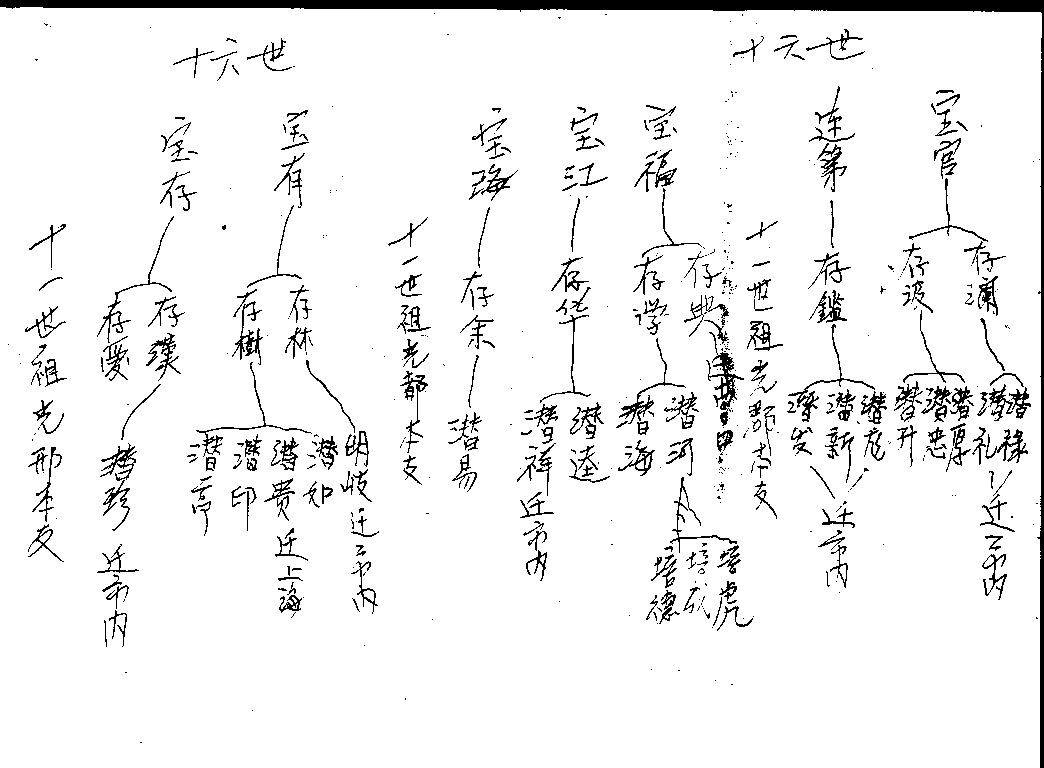 十六世
宝官
存澜
存波
潜禄
潜礼
潜厚
潜忠
潜升
迁市内
连第
存鑑
潜龙
潜新
潜发
迁市内
十一世祖光郡本支
十六世
宝福
存典
存学
潜河
潜海
培虎
培武
培德
宝江
存华
潜逵
潜祥迁市内
宝海
存余
潜易
十一世祖光都本支
宝有
存林
存樹
明岐迁市内
潜如
潜贵迁上海
潜印
潜亭
宝存
存漢
存慶
潜珍 迁市内
十一世祖光邢本支